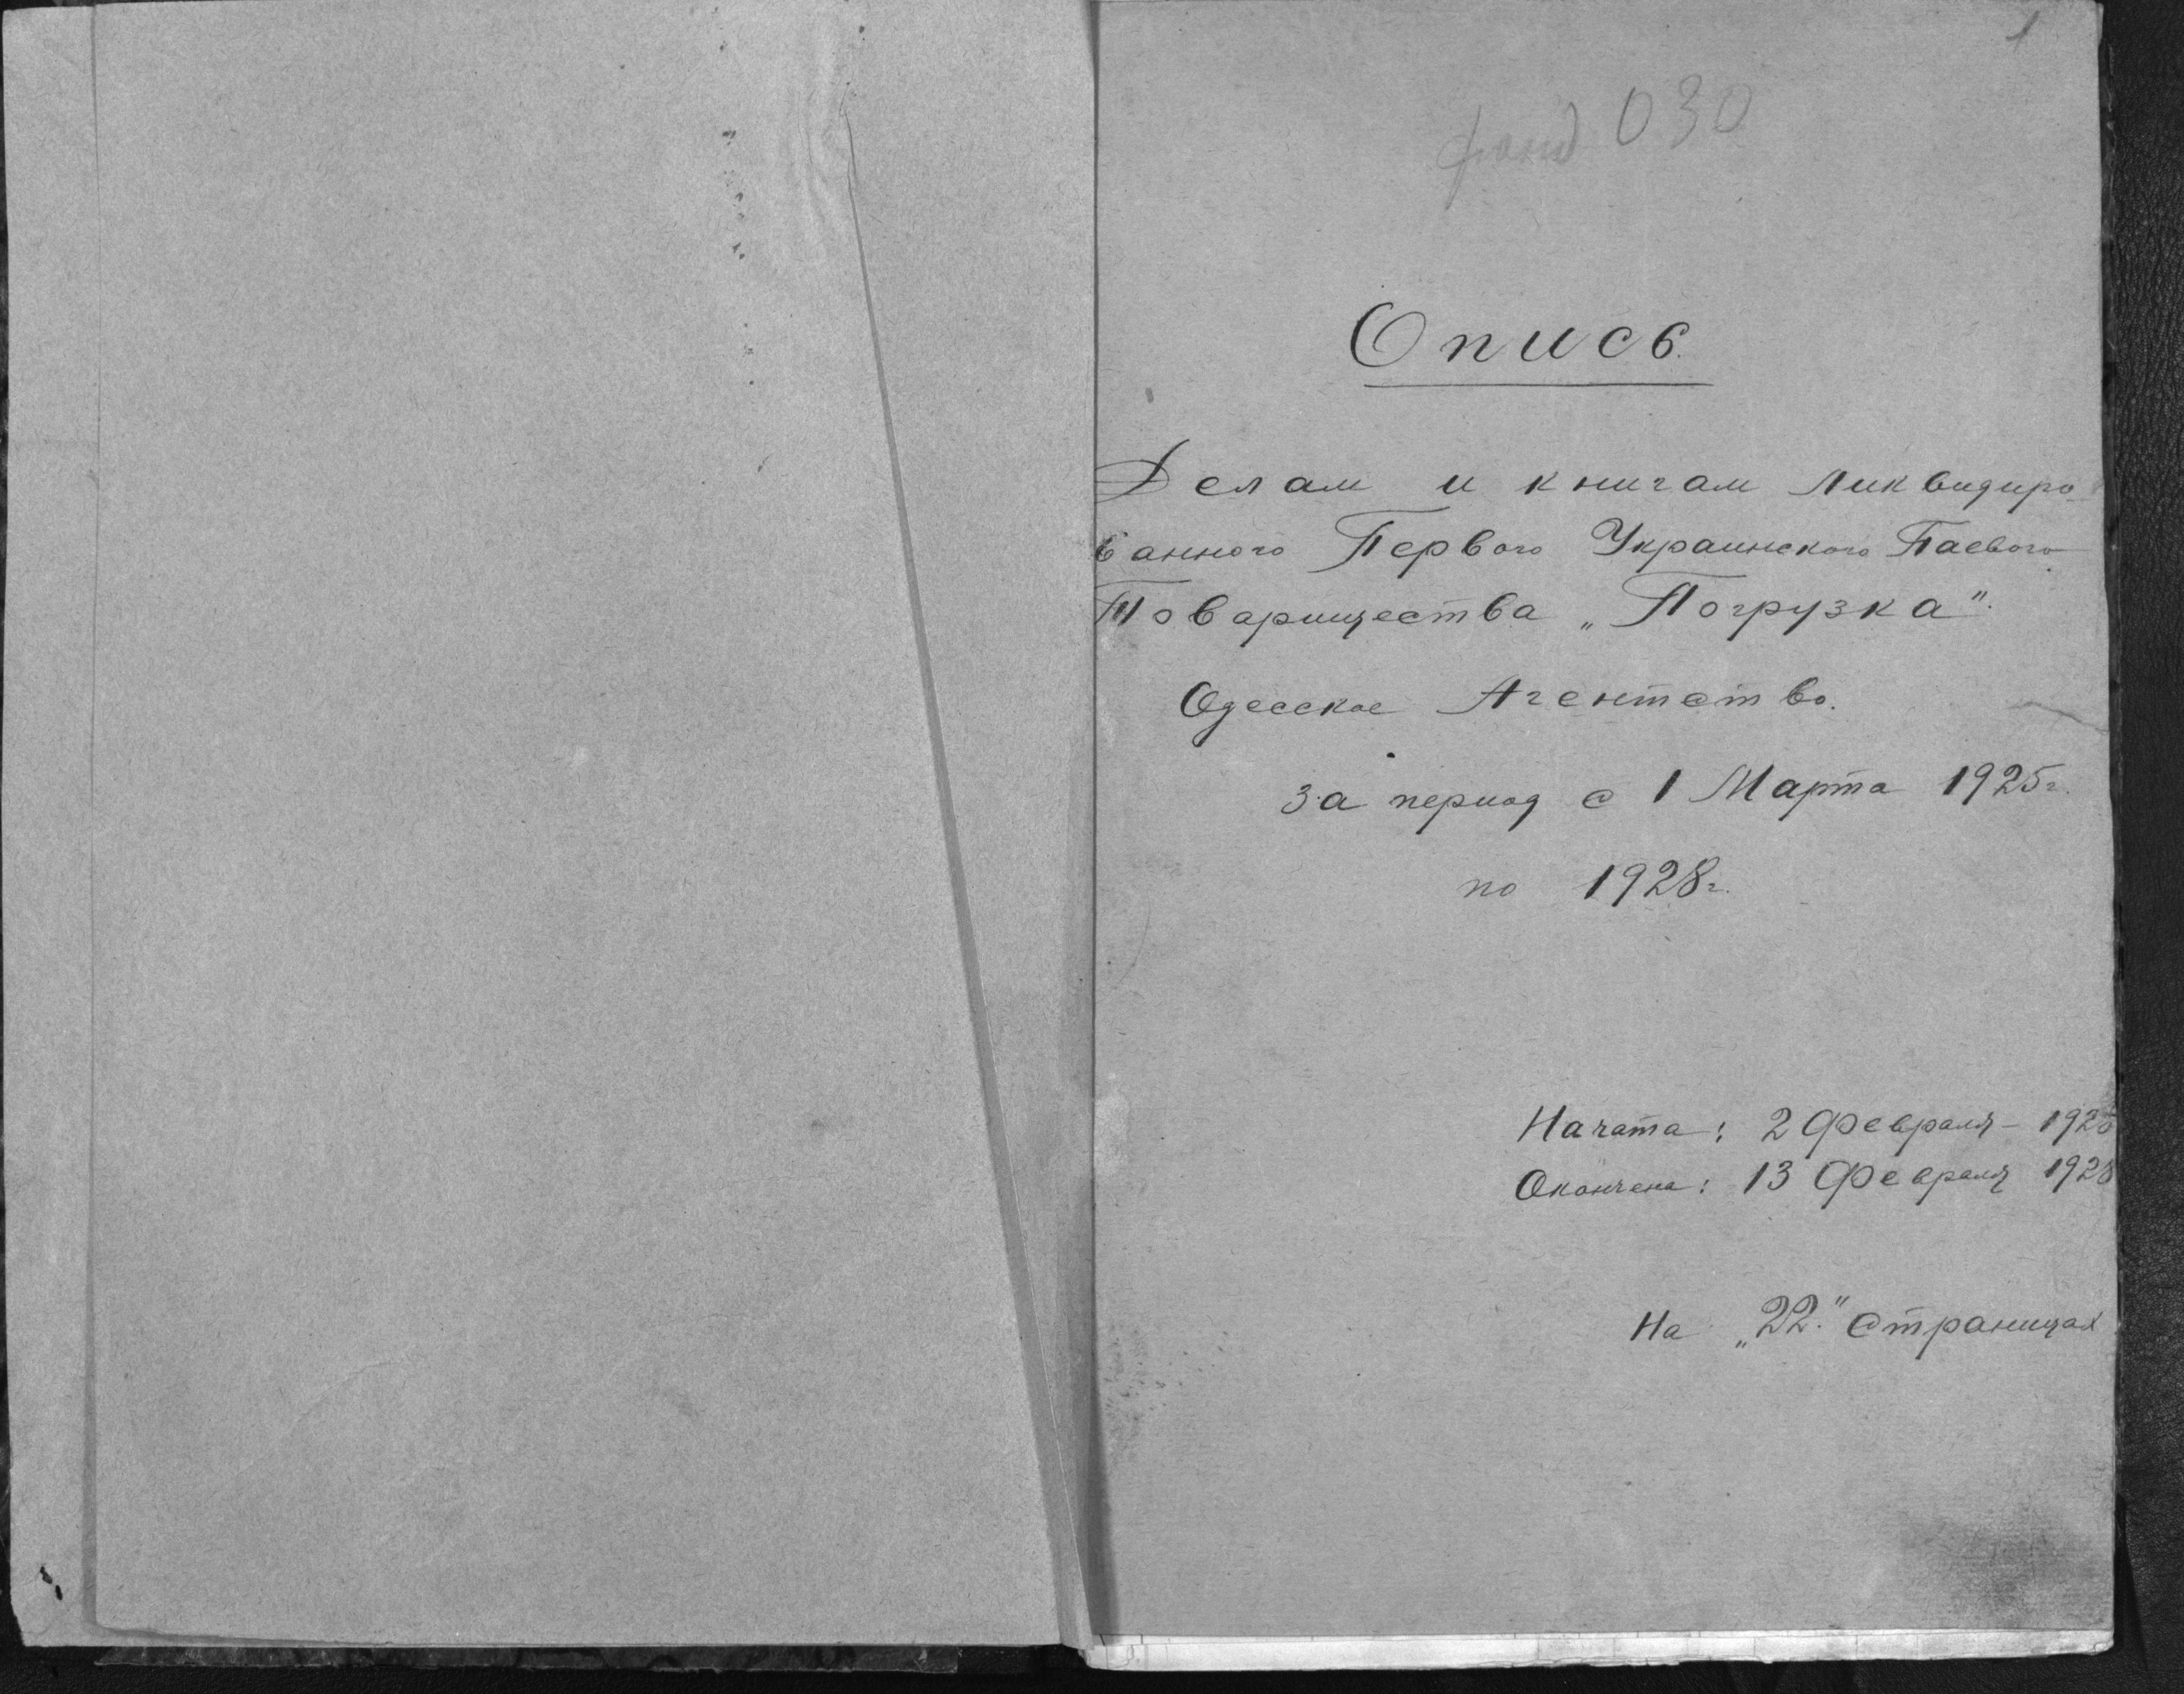 1
фонд 030
Опись
Делам и книгам Ликвидиро-
ванного Первого Украинского Паевого
Товарищества „Погрузка".
Одесское Агентство.
за период с 1 Марта 1925г.
по 1928г.
Начата: 2 Февраля - 1928
Окончена: 13 Февраля 1928
На „22." страницах